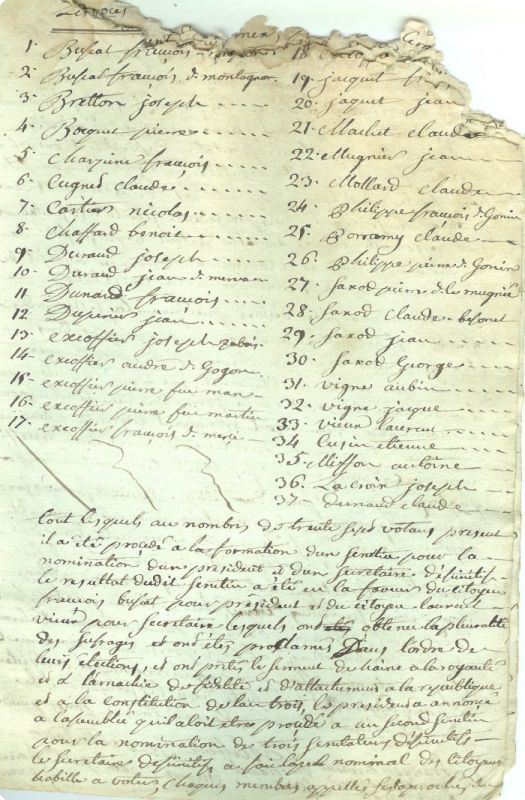 1. Buscat francois
2. Buscat francois d. montagnon
3. Bretton joseph
4. Bocquet pierre
5. Charpine francois
6. Cugnet claude
7. Cartier nicolas
8. Chaffard benoit
9. Dunand joseph
10. Dunand jean d.
11. Dunand francois
12. Duperier jean
13. excoffier joseph
14. excoffier andre d. Gogon
15. excoffier pierre feu
16. excoffier pierre feu martin
17. excoffier francois d.
18
19. jaquet
20. jaquet jean
21. Machet claude
22. Mugnier jean
23. Mollard claude
24. Philippe francois d. Gonin
25. Porramy claude
26. Philippe pierre d. Gonin
27. Saxod pierre d. le mugnier
28. Saxod Claude besonet
29. Saxod jean
30. Saxod George
31. vigne aubin
32. vigne jacque
33. vieux laurent
34 Cusin etienne
35. Misson antoine
36. La croix joseph
37. Dunand claude
tout lesquels au nombres de trente sept votans present
il a été procédé a la formation d'un scrutin pour la
nomination d'un president et d'un secretaire définitif
le resultat dudit scrutin a été en la faveur du citoyen
francois buscat pour president et du citoyen laurent
vieux pour secretaire lesquels ont obtenu la pluralité
des sufrages et ont étés proclamés Dans l'ordre de
leurs élections, et ont prétés le serment de haine a la royauté
et a l'anarchie de fidélité et d'attachement a la republique
et a la constitution de l'an trois, le president a annoncé
a l'assemblé qu'il aloit etre procédé a un second scrutin
pour la nomination de trois scrutateurs définitifs
le secretaire définitif a fait l'apel nominal des citoyens
habille a voter chaques membres appellés